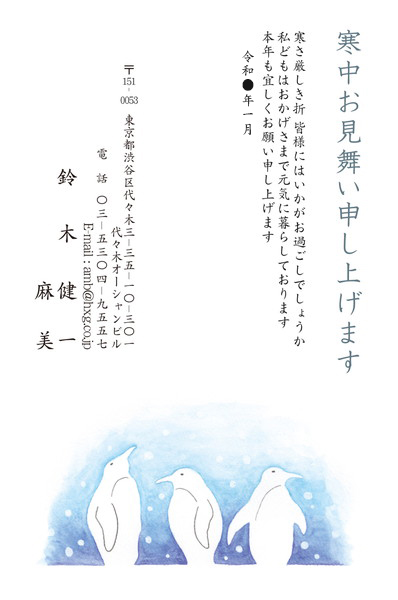 寒中お見舞い申し上げます
寒さ厳しき折 皆様にはいかがお過ごしでしょうか
私どもはおかげさまで元気に暮らしております
本年も宜しくお願い申し上げます
令和●年一月
〒151-0053 東京都渋谷区代々木三-三五-一〇-三〇一
代々木オーシャンビル
電話 〇三-五三〇四-九五五七
E-mail:amb@hxg.co.jp
鈴木健一
麻美